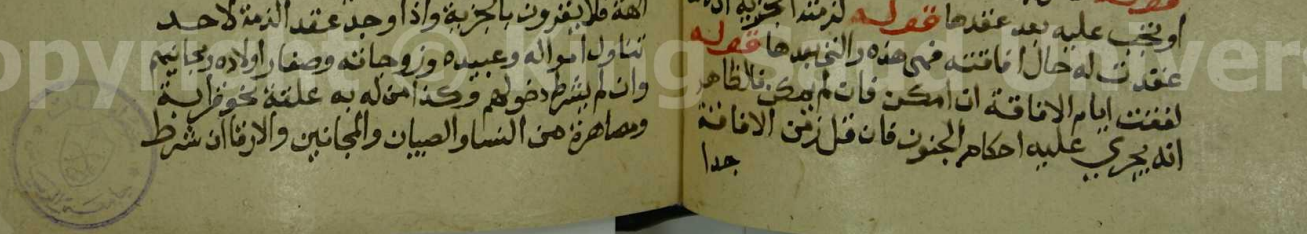 قوله
او نجب عليه بعد عقدها قوله لزمته الجزية
عقدت له حال افاقته فهى هذه والتى بعدها قوله
لفقت ايام الافاقة ان امكن فان لم يمكن فالظاهر
انه يجري عليه احكام الجنون فان قل زمن الافاقة
جدا
الهة فلا يقرون بالجزية واذا وجد عقد الذمة لاحد
تناول امواله وعبيده وزوجاته وصغار اولاده ومجانينهم
وان لم يشرط دخولهم وكذا من له به علقة نحو قرابة
ومصاهرة من النسا والصبيان والمجانين والارقا ان شرط